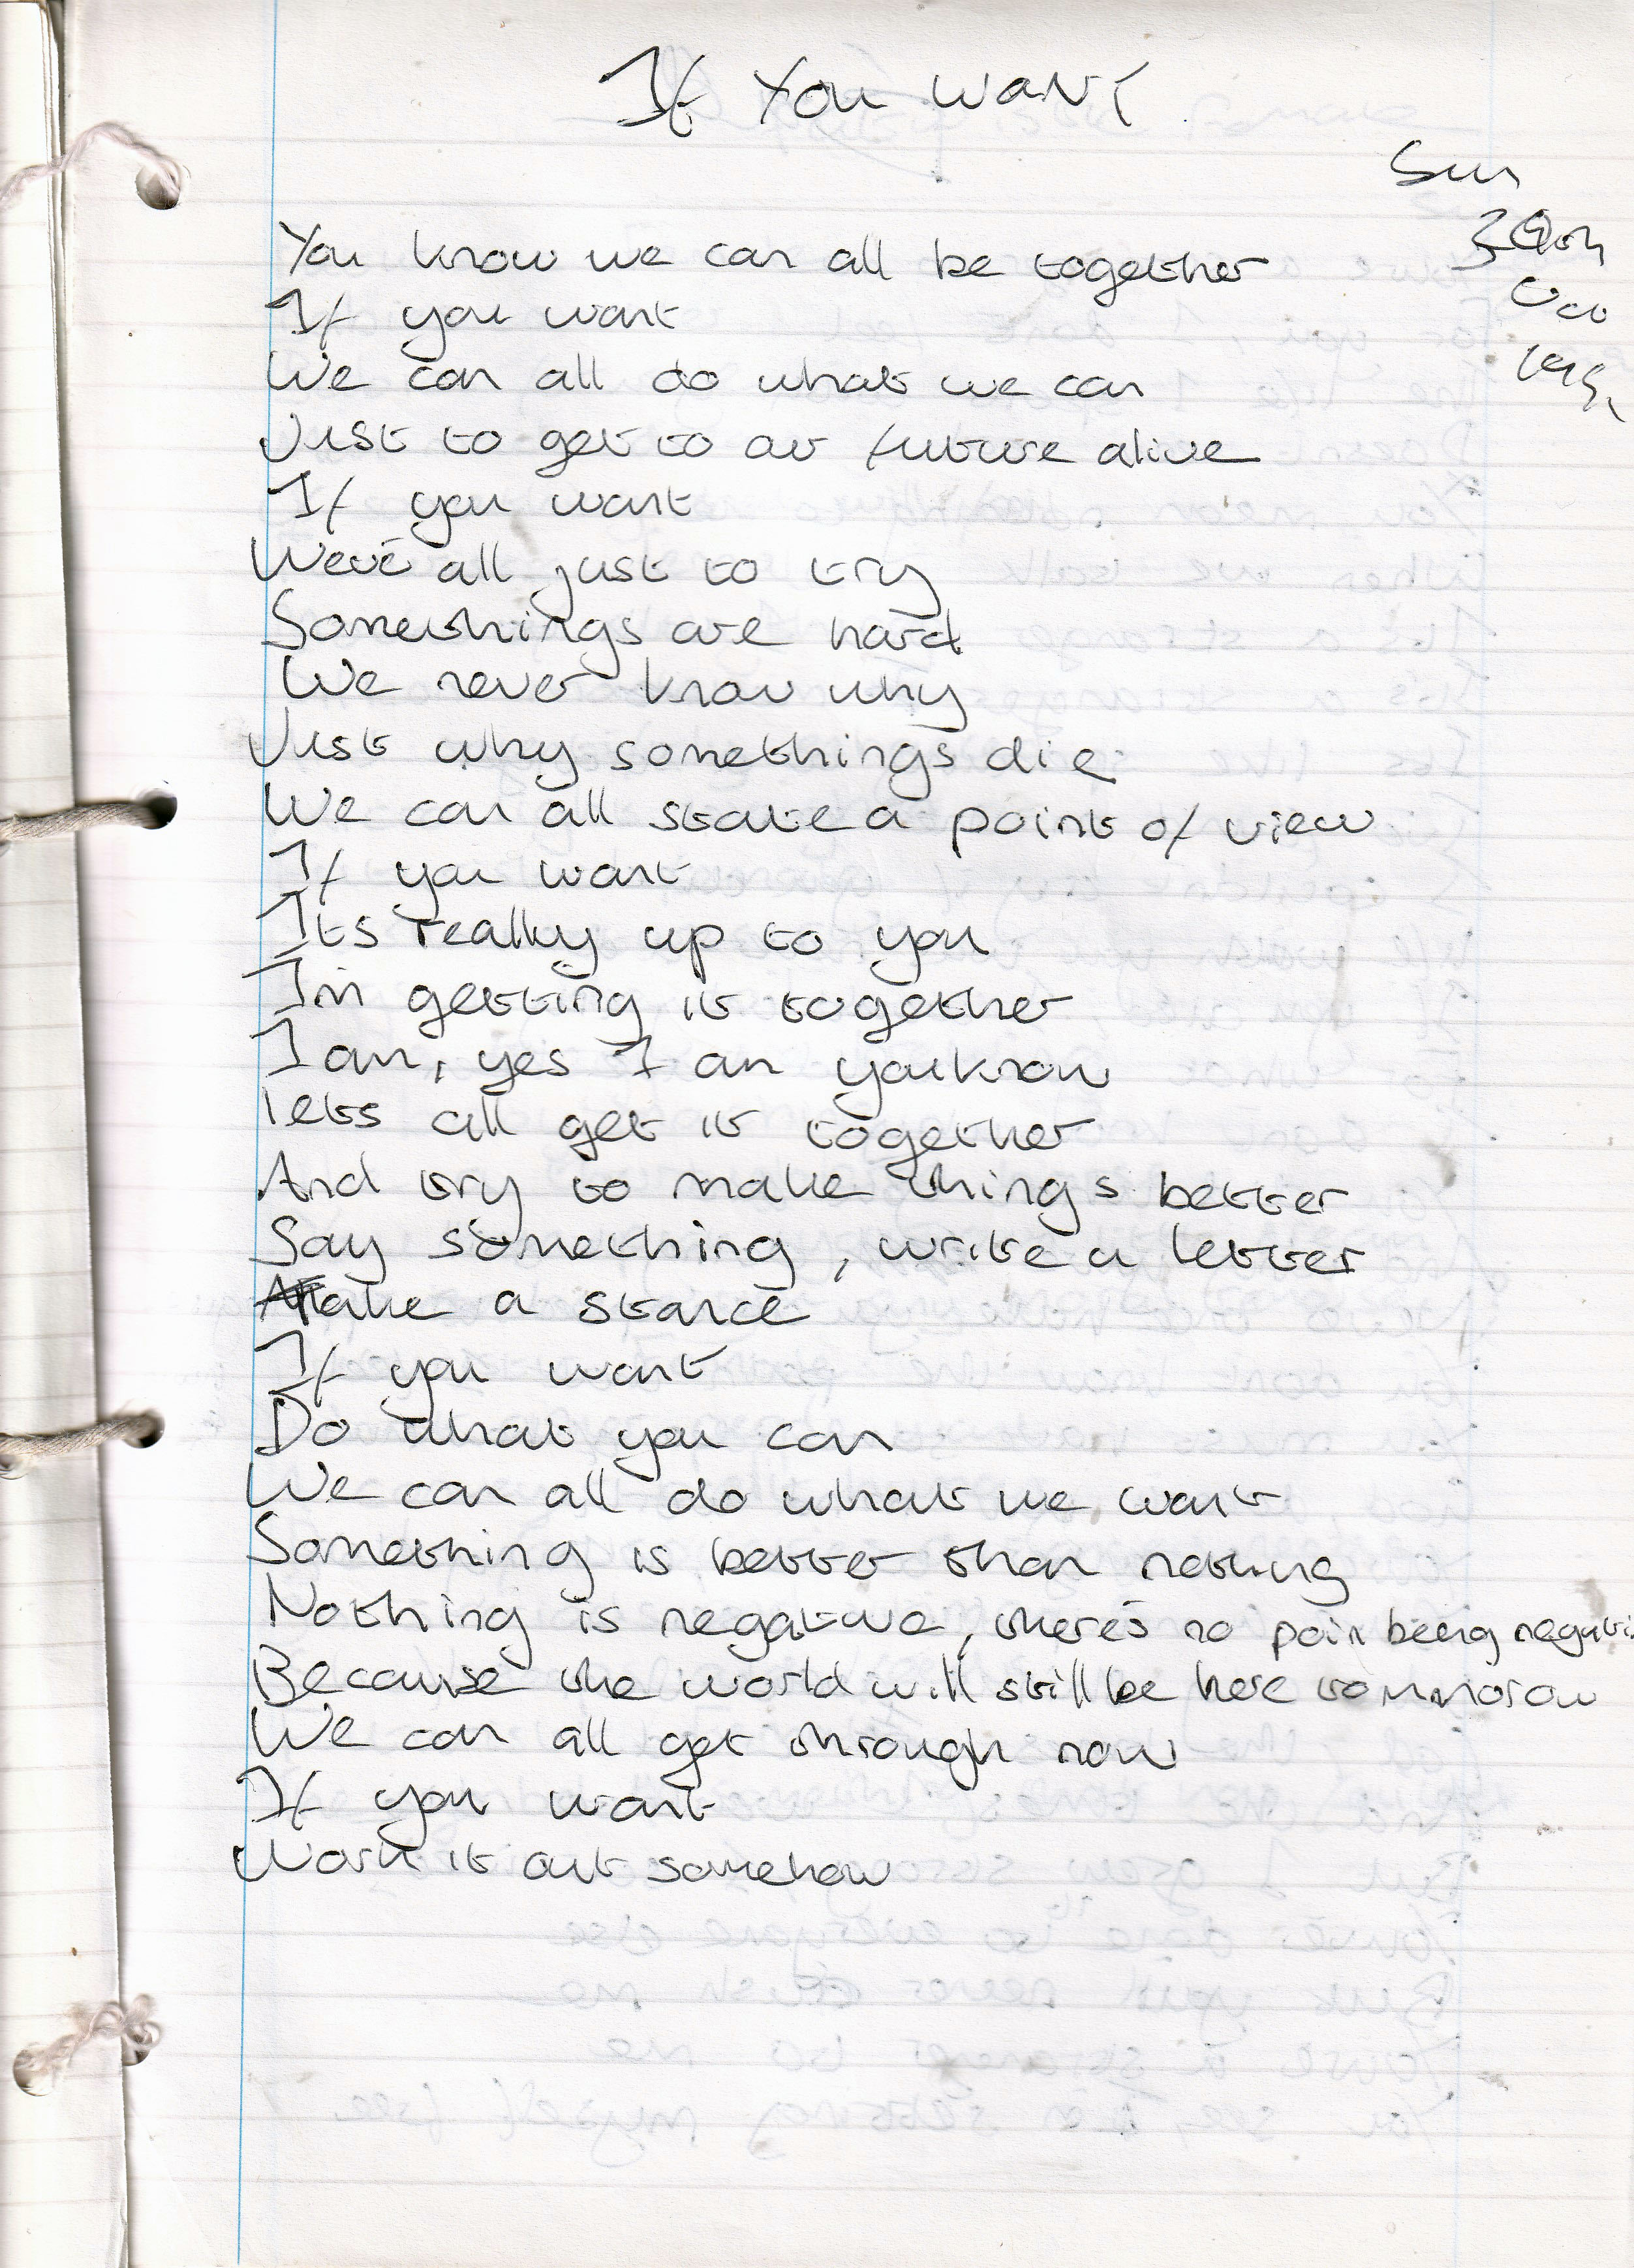 If You Want
Sun
30th
Oct
You know we can all be together
If you want
We can all do what we can
Just to get to our future alive
If you want
Weve all just to try
Somethings are hard
We never know why
Just why somethings die
We can all state a point of view
If you want
Its really up to you
Im getting it together
I am, yes I am you know
lets all get it together
And try to make things better
Say something, write a letter
Take a stance
If you want
Do what you can
We can all do what we want
Something is better than nothing
Nothing is negative, there's no point being negati
Because the world will still be here tommorow
We can all get through now
If you want
Work it out somehow